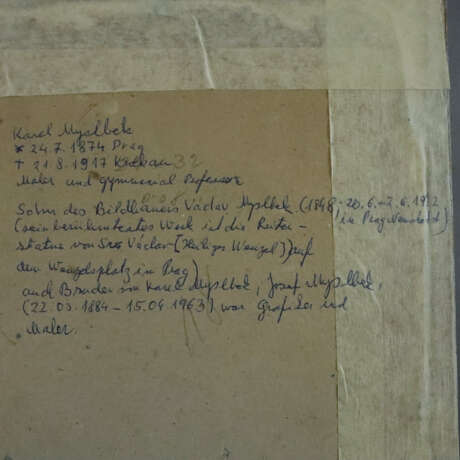 Karel Myslbek
* 24.7.1874 Prag
† 21.8.1917 Krakau 32
Maler und gymnasial Professor
Sohn des Bildhauers Václav Myslbek (1848 - 20.6. - 2.6.1922
(sein berühmtestes Werk ist die Reiter- in Prag
statue von Svo Václav (Heiliger Wenzel) auf
dem Wenzelsplatz in Prag)
auch Bruder von Karel Myslbek, Josef Myslbek,
(22.03.1884 - 15.04.1963) war Grafiker und
Maler.